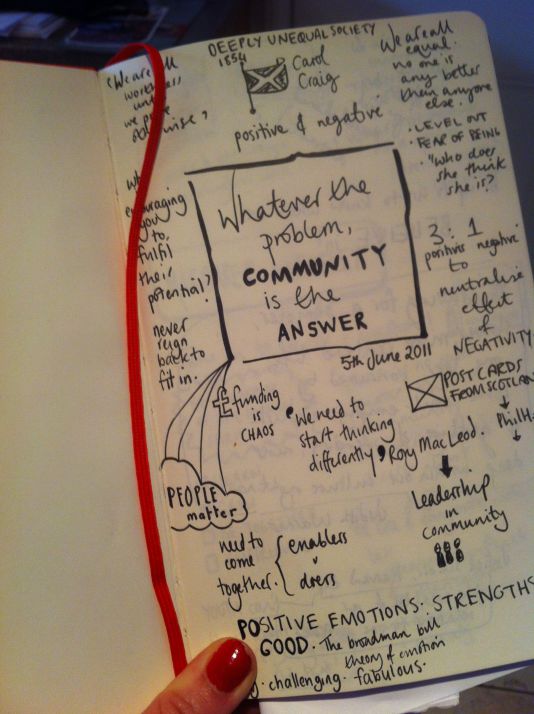 DEEPLY UNEQUAL SOCIETY
1854
Carol
Craig
positive & negative
"We are all
worthless
until
we prove
otherwise"
We are all
equal.
no one is
any better
than anyone
else.
• LEVEL OUT
• FEAR OF BEING
• "Who does
she think
she is?
encouraging
you
to
fulfil
their
potential?
never
reign
back to
fit in.
Whatever the
problem,
COMMUNITY
is the
ANSWER
5th June 2011
3:1
positives negative
to
neutralise
effect
of
NEGATIVITY
£ funding
is
CHAOS
"We need to
start thinking
differently" Rory MacLeod.
POSTCARDS
FROM SCOTLAN
Phil H
Leadership
in
community
PEOPLE
matter
need to
come
together.
enablers
doers
POSITIVE EMOTIONS: STRENGTHS
GOOD. The broadman bull
theory of emotion
• challenging. fabulous.